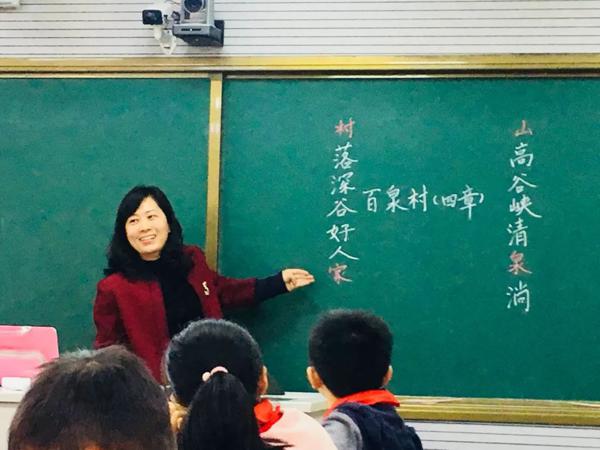 山高谷峡清泉淌
百泉村(四章)
村落深谷好人家